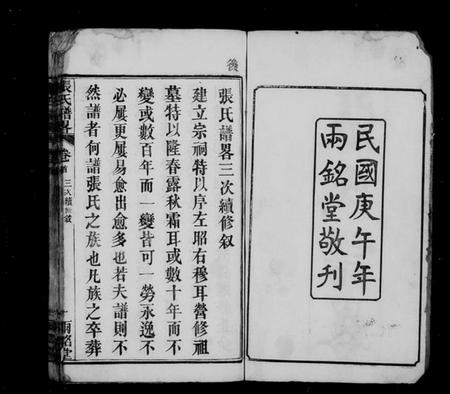 民國庚午年
兩銘堂敬刊
後
張氏譜畧三次續修叙
建立宗祠特以序左昭右穆耳營修祖
墓特以隆春露秋霜耳或數十年而不
變或數百年而一變皆可一勞永逸不
必屢更屢易愈出愈多也若夫譜則不
然譜者何譜張氏之族也凡族之卒葬
張氏譜畧 卷首 三次續修叙
兩銘堂